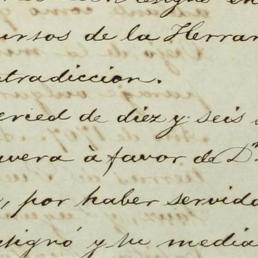 ursos de la Herra
tradiccion.
erced de diez y seis
uvera à favor de Dⁿ
, por haber servido
signó y tu media